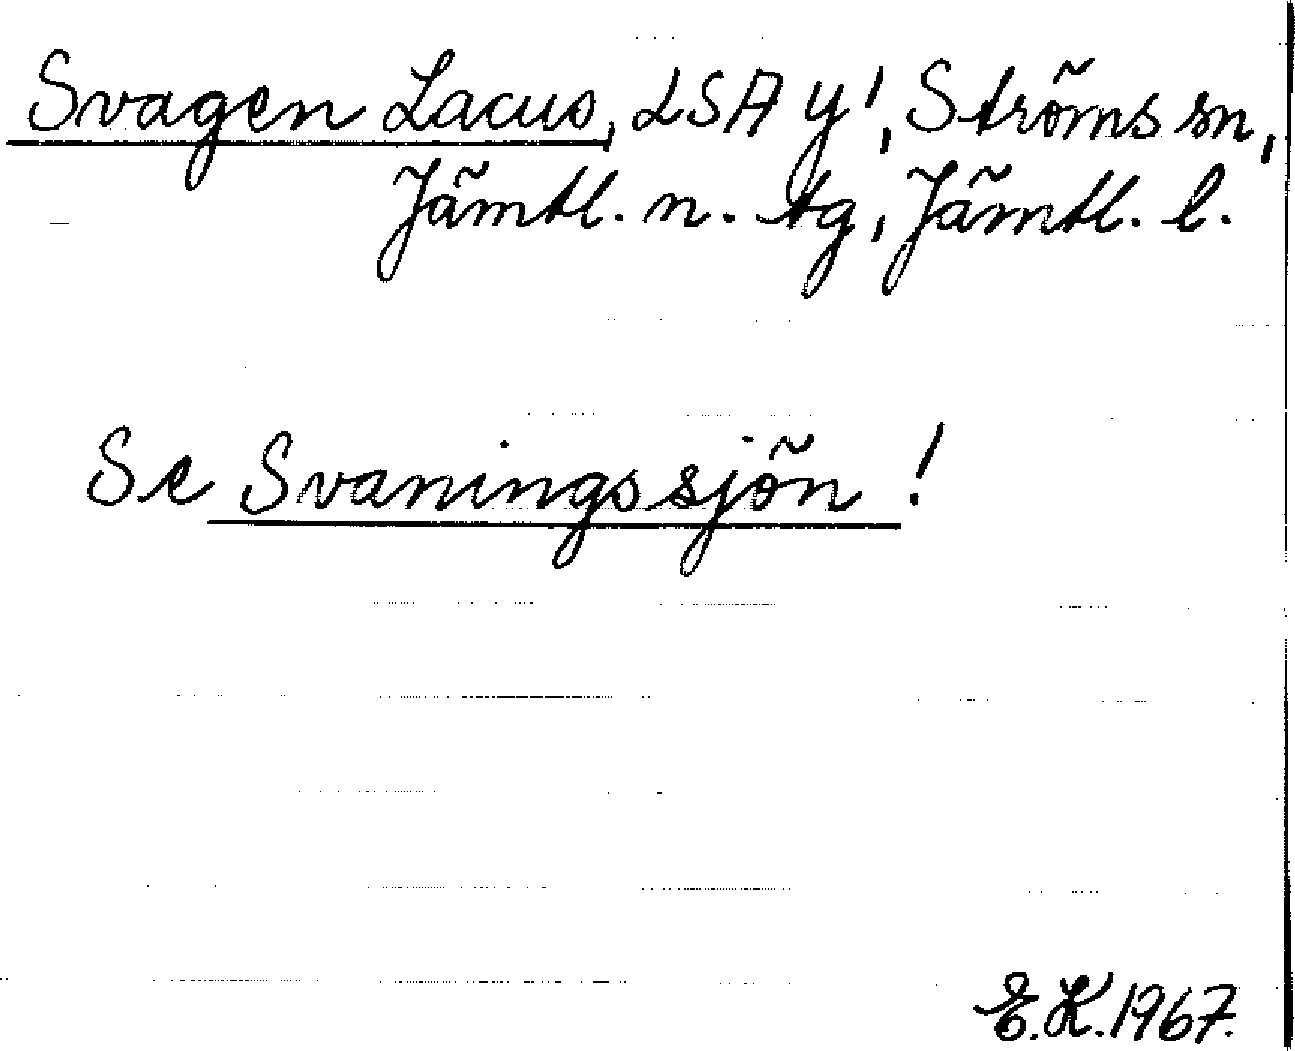 Svagen Lacus, LSA y!, Ströms sn,
Jämtl. n. tg, Jämtl. l.
Se Svaningssjön!
E.K. 1967.